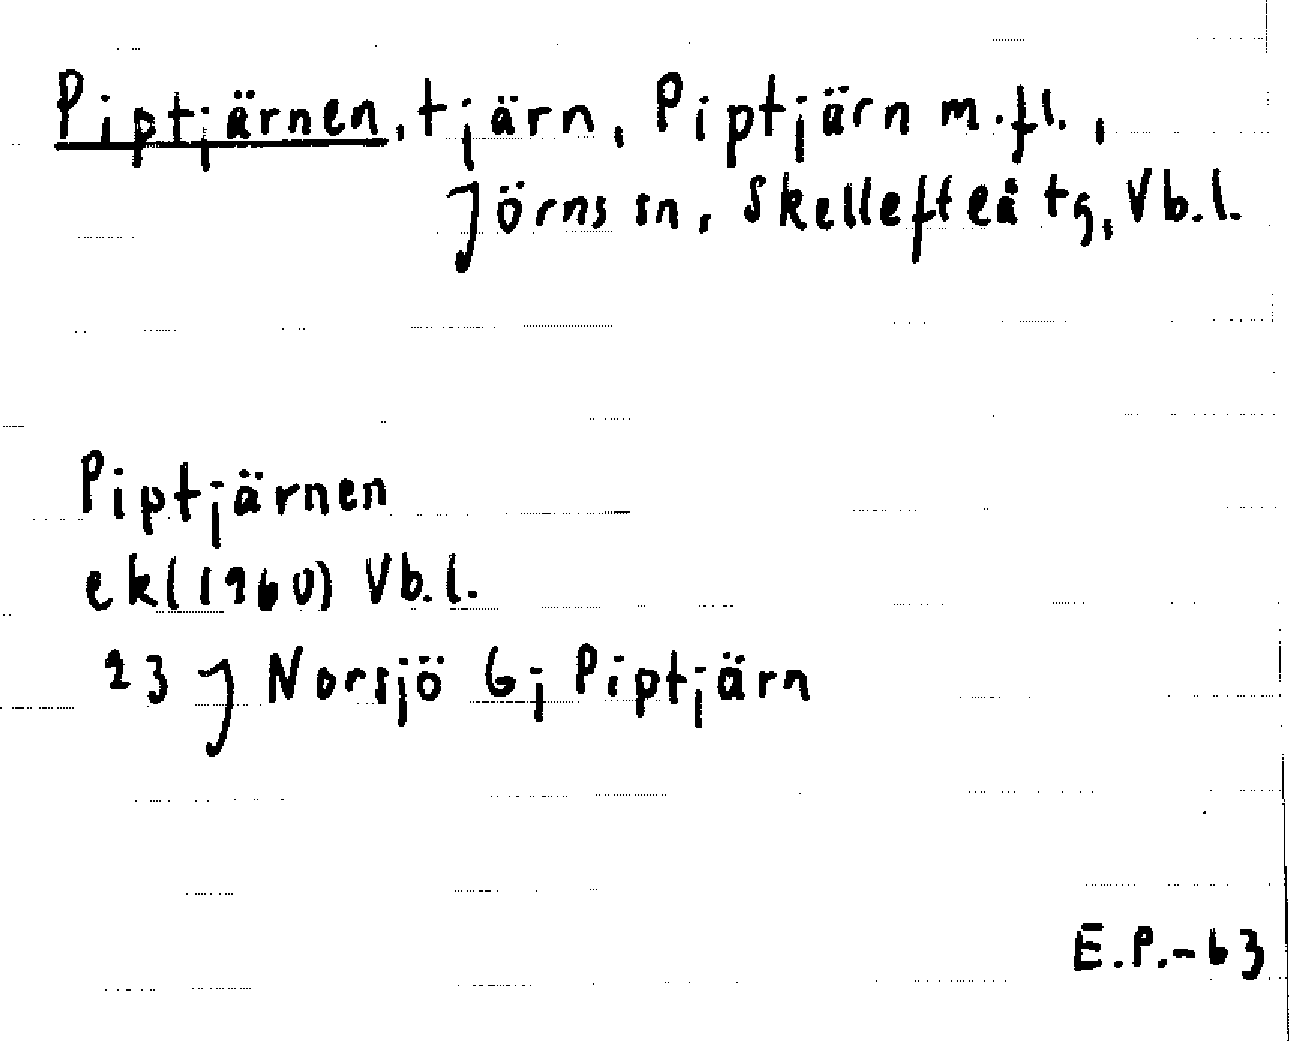 Piptjärnen, tjärn, Piptjärn m.fl.,
Jörns sn, Skellefteå tg, Vb.l.
Piptjärnen
ek(1960) Vb.l.
23 J Norsjö 6j Piptjärn
E.P.-63